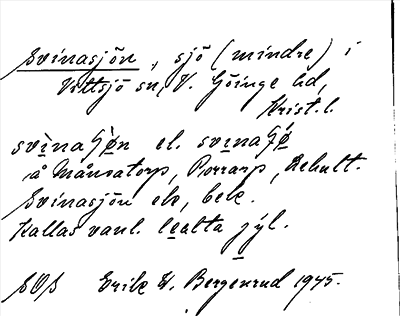 Svinasjön, sjö (mindre) i
Vittsjö sn, V. Göinge hd,
Krist. l.
svìnaʃø̀n el. svinaʃǿ
å Månsatorp, Porrarp, Rehult.
Svinasjön ek, bek.
Kallas vanl. lealta jyl.
SOS Erik W. Bergenrud 1945.